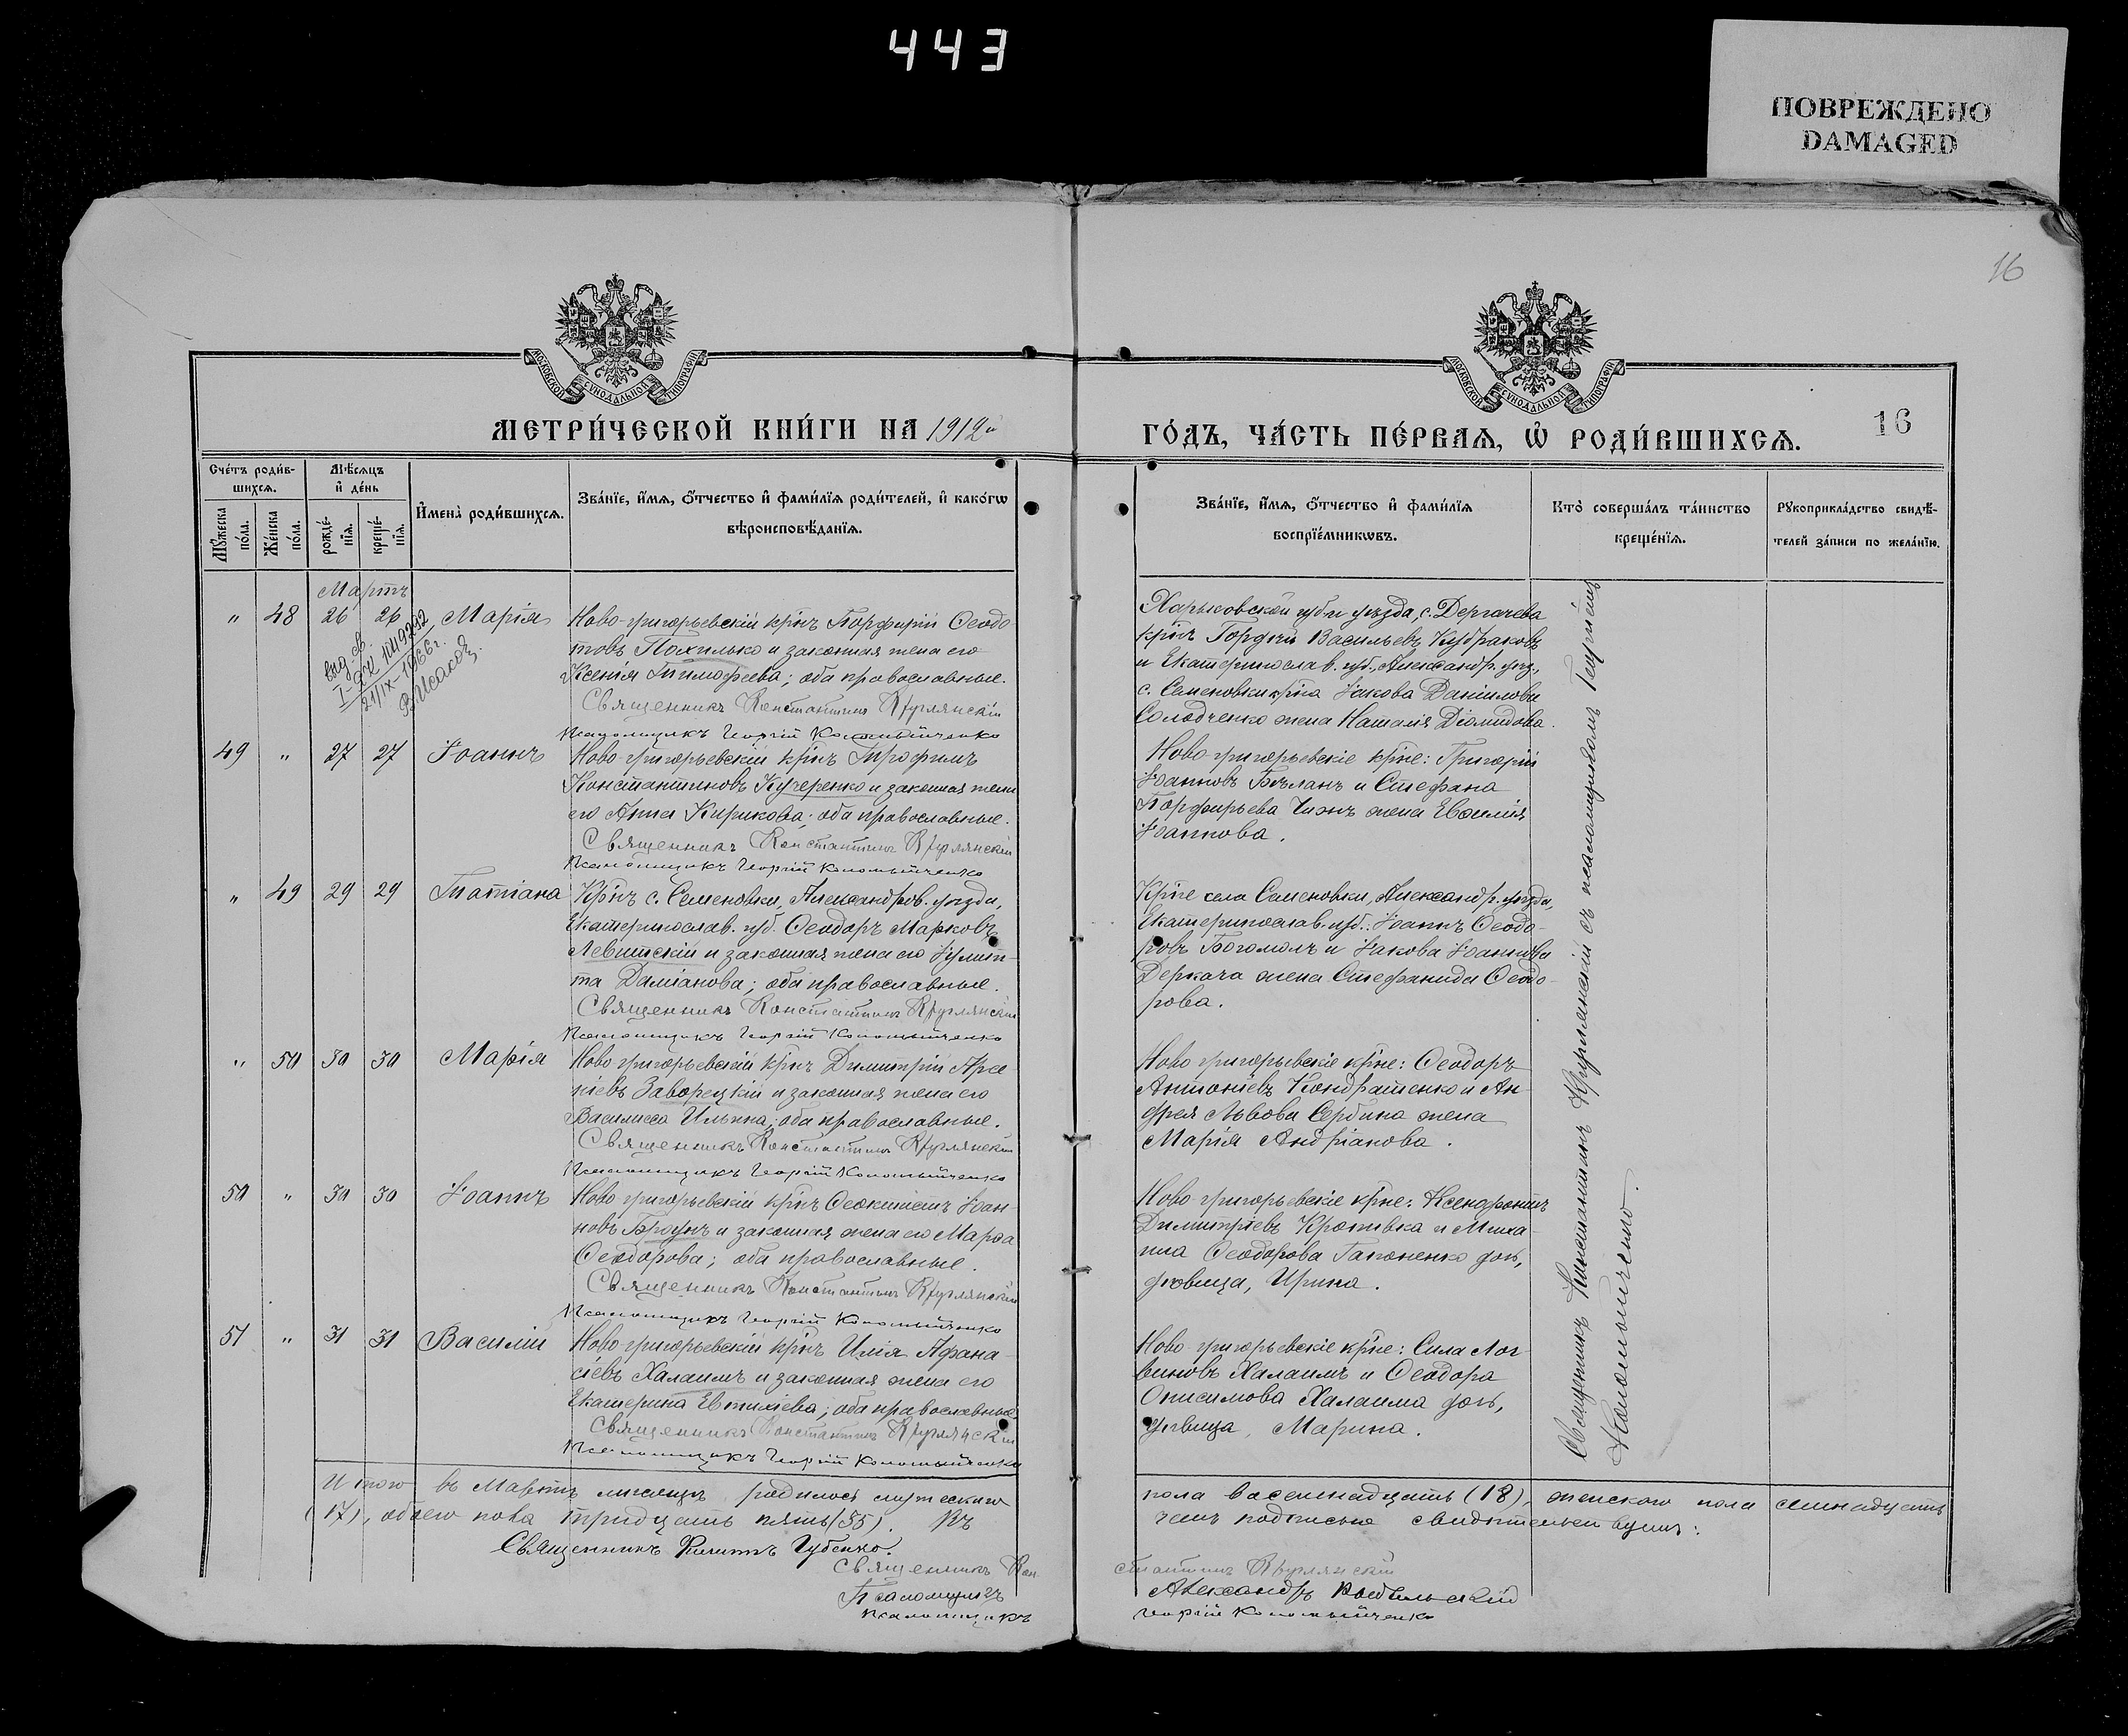 443
ПОВРЕЖДЕНО
DAMAGED
16
МОСКОВСКОЙ СѴНОДАЛЬНОЙ ТИПОГРАФІИ
МОСКОВСКОЙ СѴНОДАЛЬНОЙ ТИПОГРАФІИ
МЕТРИ́ЧЕСКОЙ КНИ́ГИ НА 1912й
ГО́ДЪ, ЧА́СТЬ ПЕ́РВАѦ, Ѡ РОДИ́ВШИХСѦ.
16
Сче́тъ роди́в-
шихсѧ.
Мѣ́сѧцъ
и҆ де́нь
Мꙋ́жеска по́ла.
Же́нска по́ла.
рожде́-нїѧ.
креще́-нїѧ.
И҆мена̀ роди́вшихсѧ.
Зва́нїе, и҆́мѧ, ѻ҆́тчество и҆ фами́лїѧ роди́телей, и҆ како́гѡ
вѣроисповѣ́данїѧ.
Зва́нїе, и҆́мѧ, ѻ҆́тчество и҆ фами́лїѧ
воспрїе́мникѡвъ.
Кто̀ соверша́лъ та́инство
креще́нїѧ.
Рꙋкоприкла́дство свидѣ́-
телей за́писи по жела́нїю.
Мартъ
" 48 26 26 Марія
Ново-григорьевскій кр҃нъ Порфирій Ѳеодо-
товъ Похилько и законная жена его
Ксенія Тимофеева; оба православные.
Священникъ Константинъ Круглянскій
Псаломщикъ Георгій Коломыйченко
Харьковской губ. и уѣзда, с. Дергачева
кр҃нъ Гордѣй Васильевъ Кудраковъ
и Екатеринослав. губ., Александр. уѣз.,
с. Семеновки кр҃на Іакова Даниілова
Солодченко жена Наталія Діомидова.
выд. св.
I-ЯЧ № 149292
21/IX-1966г.
В. Исакова
49 " 27 27 Іоаннъ
Ново-григорьевскій кр҃нъ Трофимъ
Константиновъ Кучеренко и законная жена
его Анна Кирикова; оба православные.
Священникъ Константинъ Круглянскій
Псаломщикъ Георгій Коломыйченко
Ново-григорьевскіе кр҃не: Григорій
Іоанновъ Бѣланъ и Стефана
Порфирьева Чижъ жена Евѳимія
Іоаннова.
" 49 29 29 Татіана
Кр҃нъ с. Семеновки, Александров. уѣзда,
Екатеринослав. губ. Ѳеодоръ Марковъ
Левитскій и законная жена его Іулит-
та Даміанова; оба православные.
Священникъ Константинъ Круглянскій
Псаломщикъ Георгій Коломыйченко
Кр҃не села Семеновки, Александр. уѣзда,
Екатеринослав. губ.: Іоаннъ Ѳеодо-
ровъ Богомолъ и Іакова Іоаннова
Деркача жена Стефанида Ѳеодо-
рова.
" 50 30 30 Марія
Ново-григорьевскій кр҃нъ Димитрій Арсе-
ніевъ Заворецкій и законная жена его
Василисса Ильина; оба православные.
Священникъ Константинъ Круглянскій
Псаломщикъ Георгій Коломыйченко
Ново-григорьевскіе кр҃не: Ѳеодоръ
Антоніевъ Кондратенко и Ан-
дрея Львова Сербина жена
Марія Андріанова.
50 " 30 30 Іоаннъ
Ново-григорьевскій кр҃нъ Ѳеоктистъ Іоан-
новъ Бродунъ и законная жена его Марѳа
Ѳеодорова; оба православные.
Священникъ Константинъ Круглянскій
Псаломщикъ Георгій Коломыйченко
Ново-григорьевскіе кр҃не: Ксенофонтъ
Димитріевъ Кропивка и Миха-
ила Ѳеодорова Гапоненко дочь,
дѣвица, Ирина.
51 " 31 31 Василій
Ново-григорьевскій кр҃нъ Илія Афана-
сіевъ Халаимъ и законная жена его
Екатерина Евтихіева; оба православные.
Священникъ Константинъ Круглянскій
Псаломщикъ Георгій Коломыйченко
Ново-григорьевскіе кр҃не: Сила Лог-
виновъ Халаимъ и Ѳеодора
Онисимова Халаима дочь,
дѣвица, Марина.
Священникъ Константинъ Круглянскій съ псаломщикомъ Георгіемъ
Коломыйченко.
Итого въ Мартѣ мѣсяцѣ родилось мужескаго пола восемнадцать (18), женскаго пола семнадцать
(17), обоего пола тридцать пять (35). Въ чемъ подписью свидѣтельствуемъ:
Священникъ Филиппъ Губенко.
Священникъ Константинъ Круглянскій
Псаломщикъ Александръ
Псаломщикъ Георгій Коломыйченко